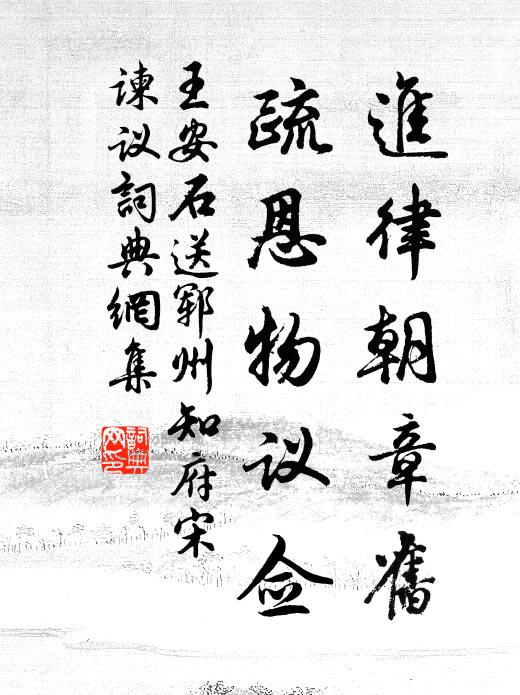 進律朝章舊
疏恩物议佥
王安石送郓州知府宋
谏议詞典網集
詞典网印